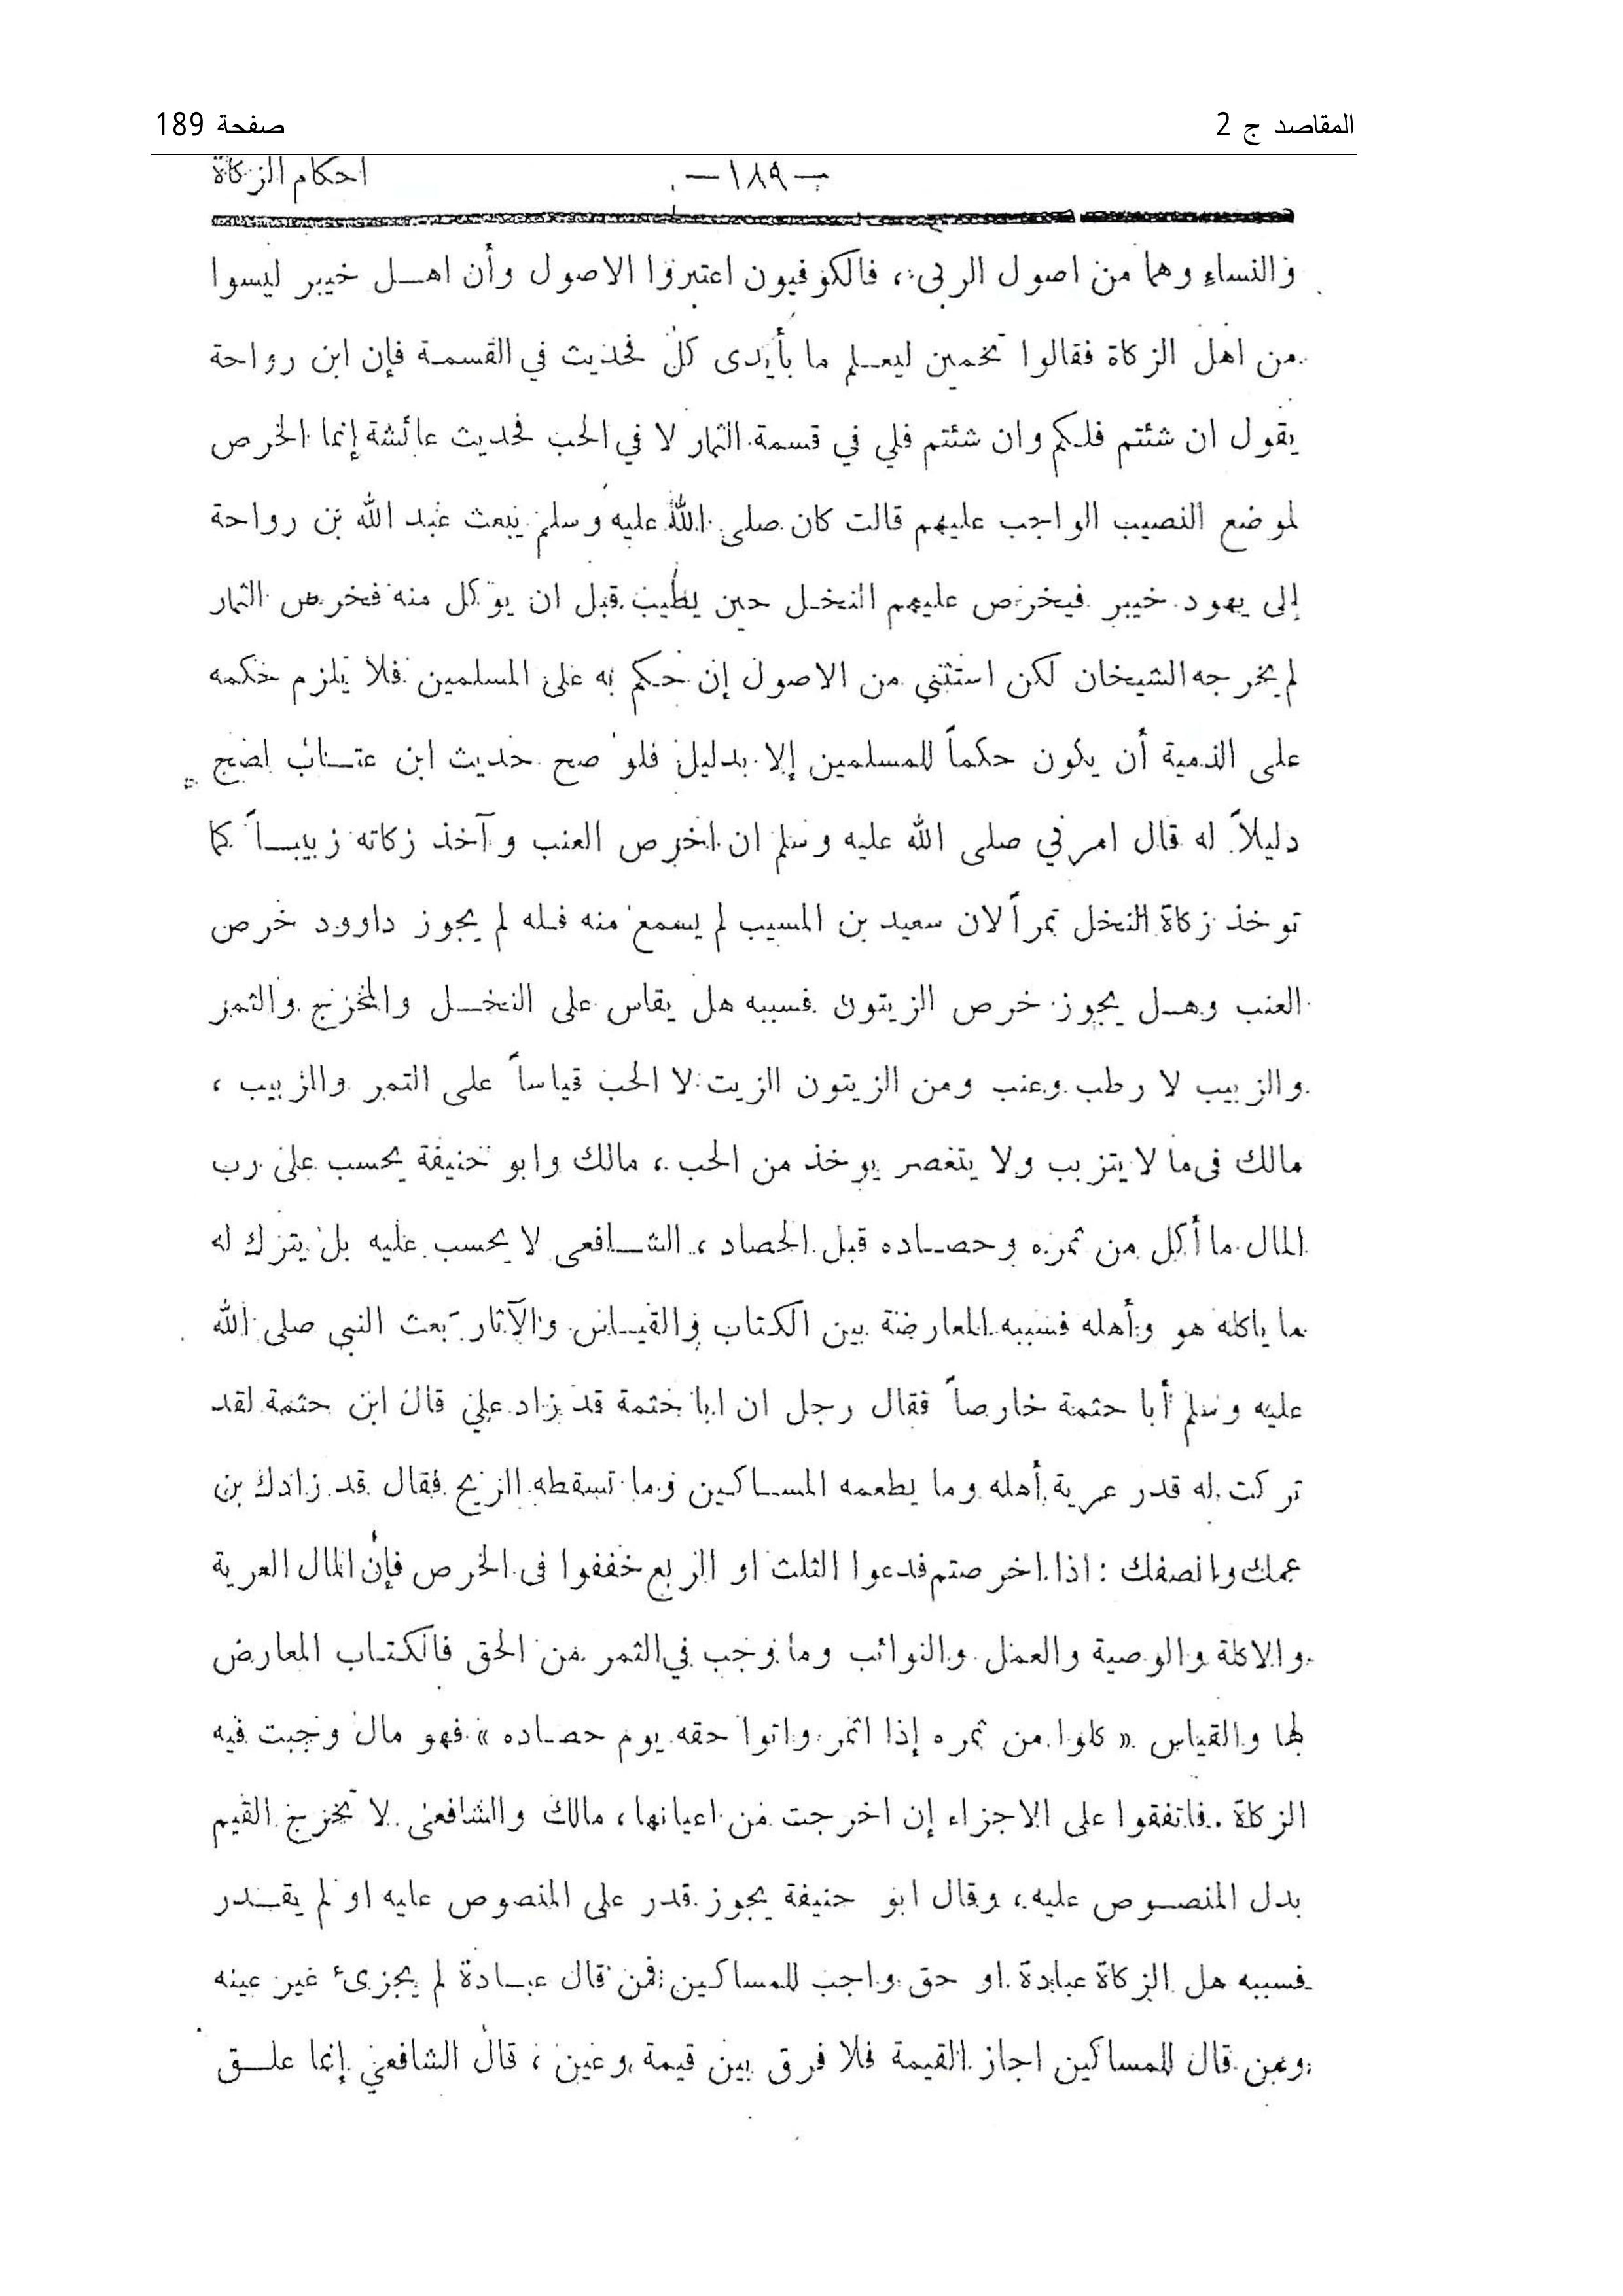 المقاصد ج 2
صفحة 189
احكام الزكاة
— ١٨٩ —
والنساء وهما من اصول الربى ، فالكوفيون اعتبروا الاصول وأن اهل خيبر ليسوا
من اهل الزكاة فقالوا تخمين ليعلم ما بأيدى كل فحديث في القسمة فإن ابن رواحة
يقول ان شئتم فلكم وان شئتم فلي في قسمة الثمار لا في الحب فحديث عائشة إنما الخرص
لموضع النصيب الواجب عليهم قالت كان صلى الله عليه وسلم يبعث عبد الله بن رواحة
إلى يهود خيبر فيخرص عليهم النخل حين يطيب قبل ان يؤكل منه فخرص الثمار
لم يخرجه الشيخان لكن استثنى من الاصول إن حكم به على المسلمين فلا يلزم حكمه
على الذمية أن يكون حكماً للمسلمين إلا بدليل فلو صح حديث ابن عتاب
دليلاً له قال امرني صلى الله عليه وسلم ان اخرص العنب وآخذ زكاته زبيباً كما
توخذ زكاة النخل تمراً لان سعيد بن المسيب لم يسمع منه فله لم يجوز داوود خرص
العنب وهل يجوز خرص الزيتون فسببه هل يقاس على النخل والمخرج والثمر
والزبيب لا رطب وعنب ومن الزيتون الزيت لا الحب قياساً على التمر والزبيب ،
مالك فى ما لا يتزبب ولا يتعصر يوخذ من الحب ، مالك وابو حنيفة يحسب على رب
المال ما أكل من ثمره وحصاده قبل الحصاد ، الشافعى لا يحسب عليه بل يترك له
ما ياكله هو وأهله فسببه المعارضة بين الكتاب والقياس والآثار بعث النبي صلى الله
عليه وسلم أبا حثمة خارصاً فقال رجل ان ابا حثمة قد زاد علي قال ابن حثمة لقد
تركت له قدر عرية أهله وما يطعمه المساكين وما تسقطه الريح فقال قد زادك بن
عمك وانصفك : اذا اخرصتم فدعوا الثلث او الربع خففوا فى الخرص فإن المال العرية
والاكلة والوصية والعمل والنوائب وما وجب في الثمر من الحق فالكتاب المعارض
لها والقياس « كلوا من ثمره إذا اثمر واتوا حقه يوم حصاده » فهو مال وجبت فيه
الزكاة . فاتفقوا على الاجزاء إن اخرجت من اعيانها ، مالك والشافعى لا تخرج القيم
بدل المنصوص عليه ، وقال ابو حنيفة يجوز قدر على المنصوص عليه او لم يقدر
فسببه هل الزكاة عبادة او حق واجب للمساكين فمن قال عبادة لم يجزىء غير عينه
ومن قال للمساكين اجاز القيمة فلا فرق بين قيمة وعين ، قال الشافعي إنما علق